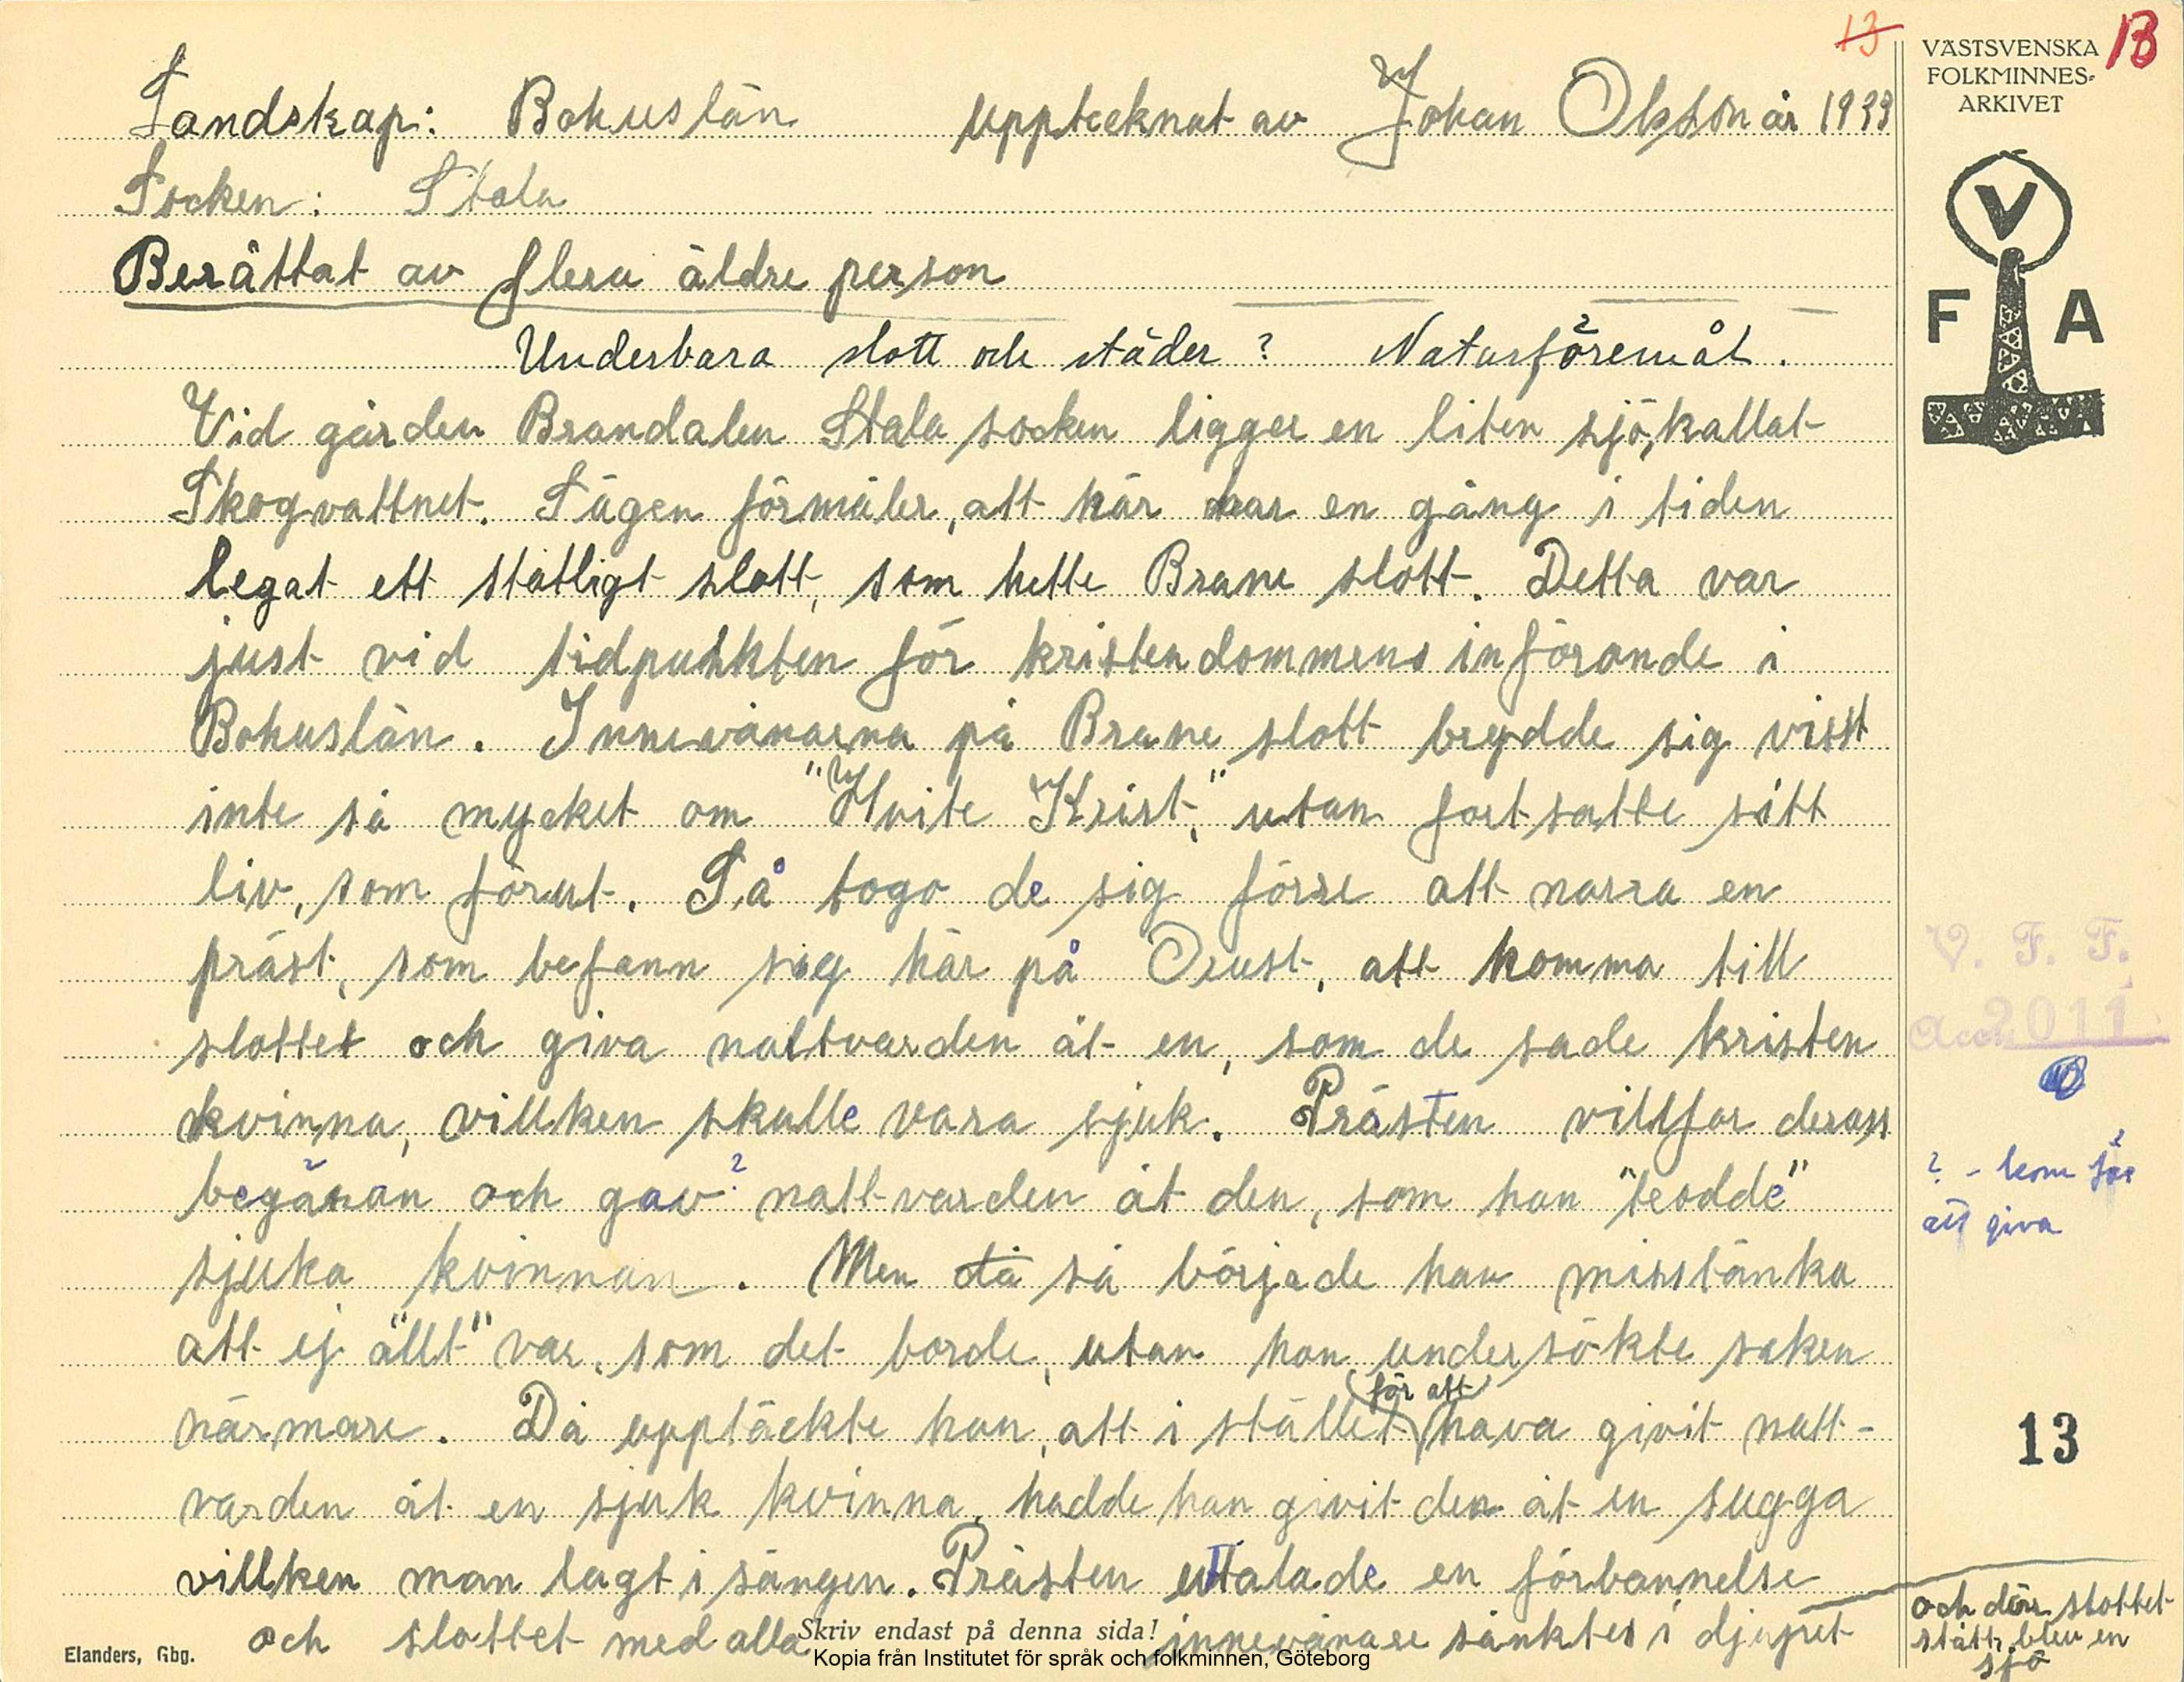 13 13
VÄSTSVENSKA
FOLKMINNES-
ARKIVET
V
F A
Landskap: Bohuslän upptecknat av Johan Olsson år 1933
Socken: Stala
Berättat av flera äldre person
Underbara slott och städer? Naturföremål.
Vid gården Brandalen Stala socken ligger en liten sjö, kallat
Skogvattnet. Sägen förmäler, att här har en gång i tiden
legat ett ståtligt slott, som hette Brane slott. Detta var
just vid tidpunkten för kristendommens införande i
Bohuslän. Innevånarna på Brane slott brydde sig visst
inte så mycket om "Hvite Krist," utan fortsatte sitt
liv, som förut. Så togo de sig förre att narra en
präst, som befann sig här på Orust, att komma till
slottet och giva nattvarden åt en, som de sade kristen
kvinna, villken skulle vara sjuk. Prästen villfor derass
begäran och gav? nattvarden åt den, som han "trodde"
sjuka kvinnan. Men då så började han misstänka
att ej "allt" var, som det borde, utan han undersökte saken
närmare. Då upptäckte han, att i stället för att hava givit natt-
varden åt en sjuk kvinna, hadde han givit den åt en sugga
villken man lagt i sängen. Prästen uttalade en förbannelse
och slottet med alla innevånare sänktes i djupet
och där slottet
stått, blev en
sjö
V. F. F.
Acc. 2011
? - kom för
att giva
13
Skriv endast på denna sida!
Elanders, Gbg.
Kopia från Institutet för språk och folkminnen, Göteborg